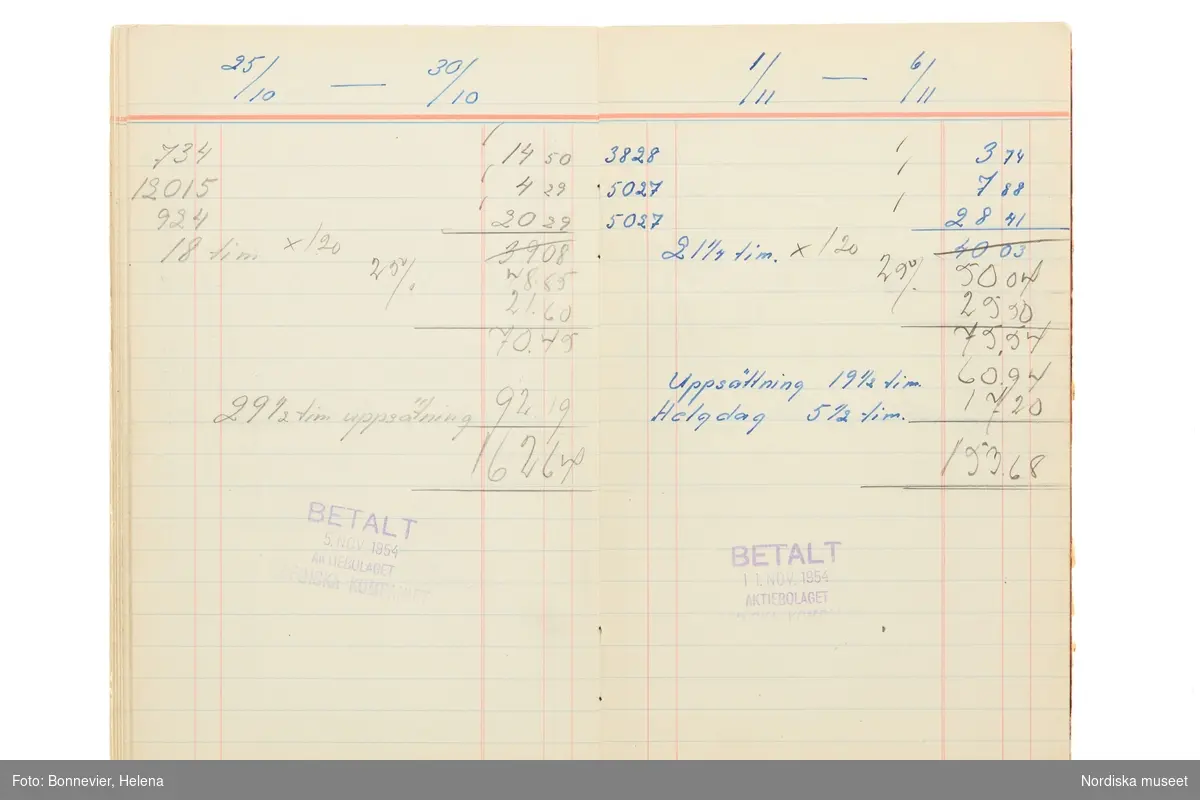 25/10 — 30/10
734 14 50
12015 4 29
924 20 29
18 tim. x 1 20 39 08
25% 48.85
21.60
70.45
92 19
29 1/2 tim uppsätning
162 64
BETALT
5. NOV. 1954
AKTIEBOLAGET
1/11 — 6/11
3828 3 74
5027 7 88
5027 28 41
21 1/4 tim. x 1 20 40 03
25% 50 04
25 50
75.54
Uppsättning 19 1/2 tim. 60.94
Helgdag 5 1/2 tim. 17 20
153.68
BETALT
11. NOV. 1954
AKTIEBOLAGET
Foto: Bonnevier, Helena
Nordiska museet